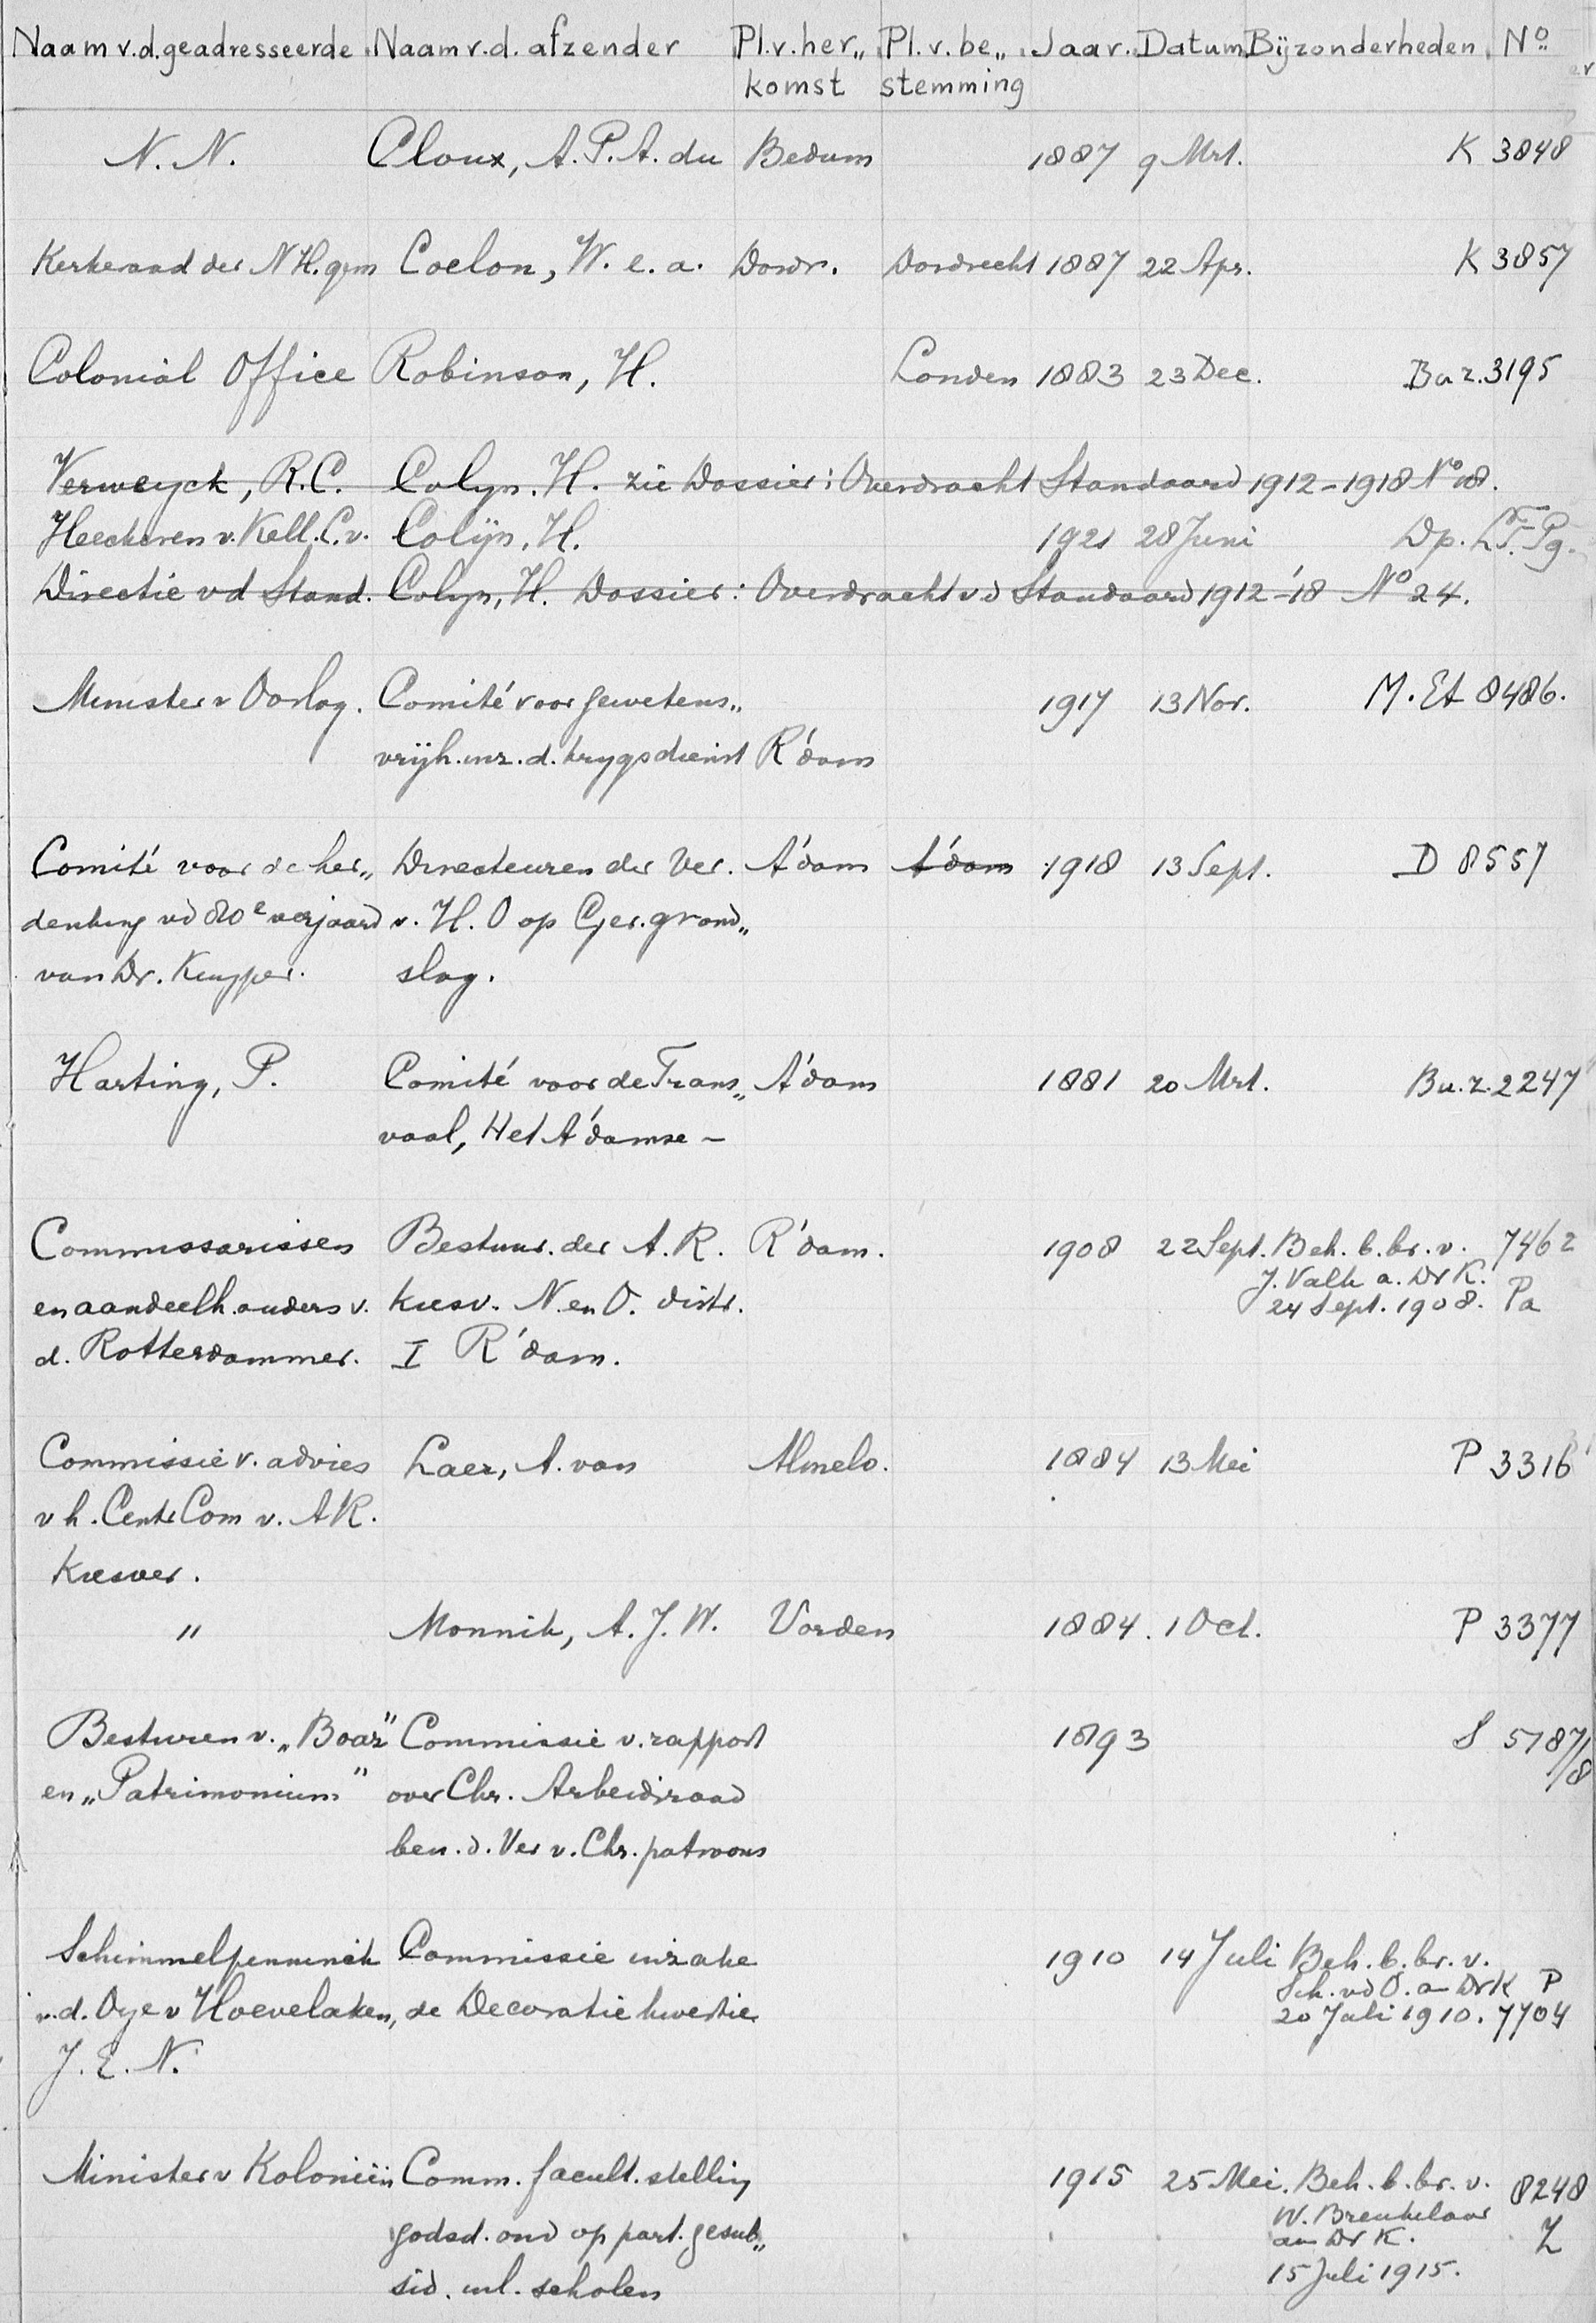 Naam v.d. geadresseerde Naam v.d. afzender Pl. v. her„ Pl. v. be„ Jaar. Datum Bijzonderheden No
komst stemming
N. N. Cloux, A. P. A. du Bedum 1887 9 Mrt. K 3848
Kerkeraad der N H. gem Coelon, W. e. a. Dordr. Dordrecht 1887 22 Apr. K 3857
Colonial Office Robinson, H. Londen 1883 23 Dec. Bu z. 3195
Verweyck, R. C. Colyn. H. zie Dossier: Overdracht Standaard 1912-1918 No 8.
Heeckeren v. Kell. C. v. Colijn, H. 1921 28 Juni Dp. LF. Pg.
Directie vd Stand. Colyn, H. Dossier: Overdracht vd Standaard 1912-'18 No 24.
Minister v Oorlog. Comité voor gewetens„ 1917 13 Nov. M. Et 8486.
vrijh. inz. d. krygsdienst R'dam
Comité voor de her„ Directeuren der Ver. A'dam A'dam 1918 13 Sept. D 8557
denking vd 80e verjaard v. H. O op Ger. grond„
van Dr. Kuyper. slag.
Harting, P. Comité voor de Trans„ A'dam 1881 20 Mrt. Bu. z. 2247
vaal, Het A'damse -
Commissarissen Bestuur. der A. R. R'dam. 1908 22 Sept. Beh. b. br. v. 7462
J. Valk a. Dr K.
en aandeelhouders v. kiesv. N en O. distr. 24 Sept. 1908. Pa
d. Rotterdammer. I R'dam.
Commissie v. advies Laer, A. van Almelo. 1884 13 Mei P 3316
v h. Centr Com v. A R.
Kiesver.
" Monnik, A. J. W. Vorden 1884. 1 Oct. P 3377
Besturen v. „Boaz" Commissie v. rapport 1893 S 5187/8
en „Patrimonium" over Chr. Arbeidsraad
ben. d. Ver v. Chr. patroons
Schimmelpenninck Commissie inzake 1910 14 Juli Beh. b. br. v.
Sch. vd O. a Dr K P
v. d. Oye v Hoevelaken, de Decoratiekwestie 20 Juli 1910. 7704
J. E. N.
Minister v Koloniën Comm. facult. stelling 1915 25 Mei. Beh. b. br. v. 8248
W. Breukelaar
godsd. ond op part. gesub„ aan Dr K. Z
sid. inl. scholen 15 Juli 1915.